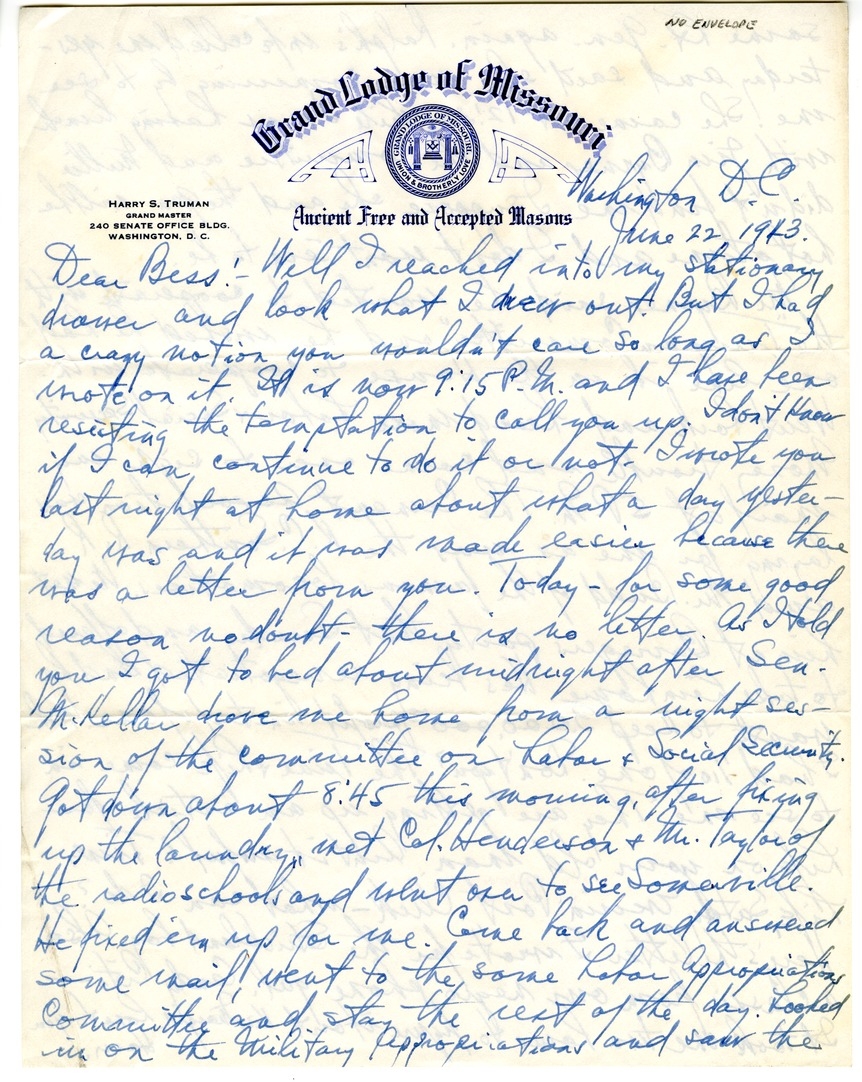 NO ENVELOPE
Grand Lodge of Missouri
GRAND LODGE OF MISSOURI
UNION & BROTHERLY LOVE
Ancient Free and Accepted Masons
HARRY S. TRUMAN
GRAND MASTER
240 SENATE OFFICE BLDG.
WASHINGTON, D. C.
Washington D.C.
June 22, 1943.
Dear Bess:- Well I reached into my stationary
drawer and look what I drew out! But I had
a crazy notion you wouldn't care so long as I
wrote on it. It is now 9:15 P.M. and I have been
resisting the temptation to call you up. I don't know
if I can continue to do it or not. I wrote you
last night at home about what a day yester-
day was and it was made easier because there
was a letter from you. Today - for some good
reason no doubt - there is no letter. As I told
you I got to bed about midnight after Sen.
McKellar drove me home from a night ses-
sion of the committee on Labor & Social Security.
Got down about 8:45 this morning, after fixing
up the laundry, met Col. Henderson & Mr. Taylor of
the radio schools and went over to see Somerville.
He fixed em up for me. Come back and answered
some mail, went to the same Labor Appropriations
Committee and stay the rest of the day. Looked
in on the Military Appropriations and saw the